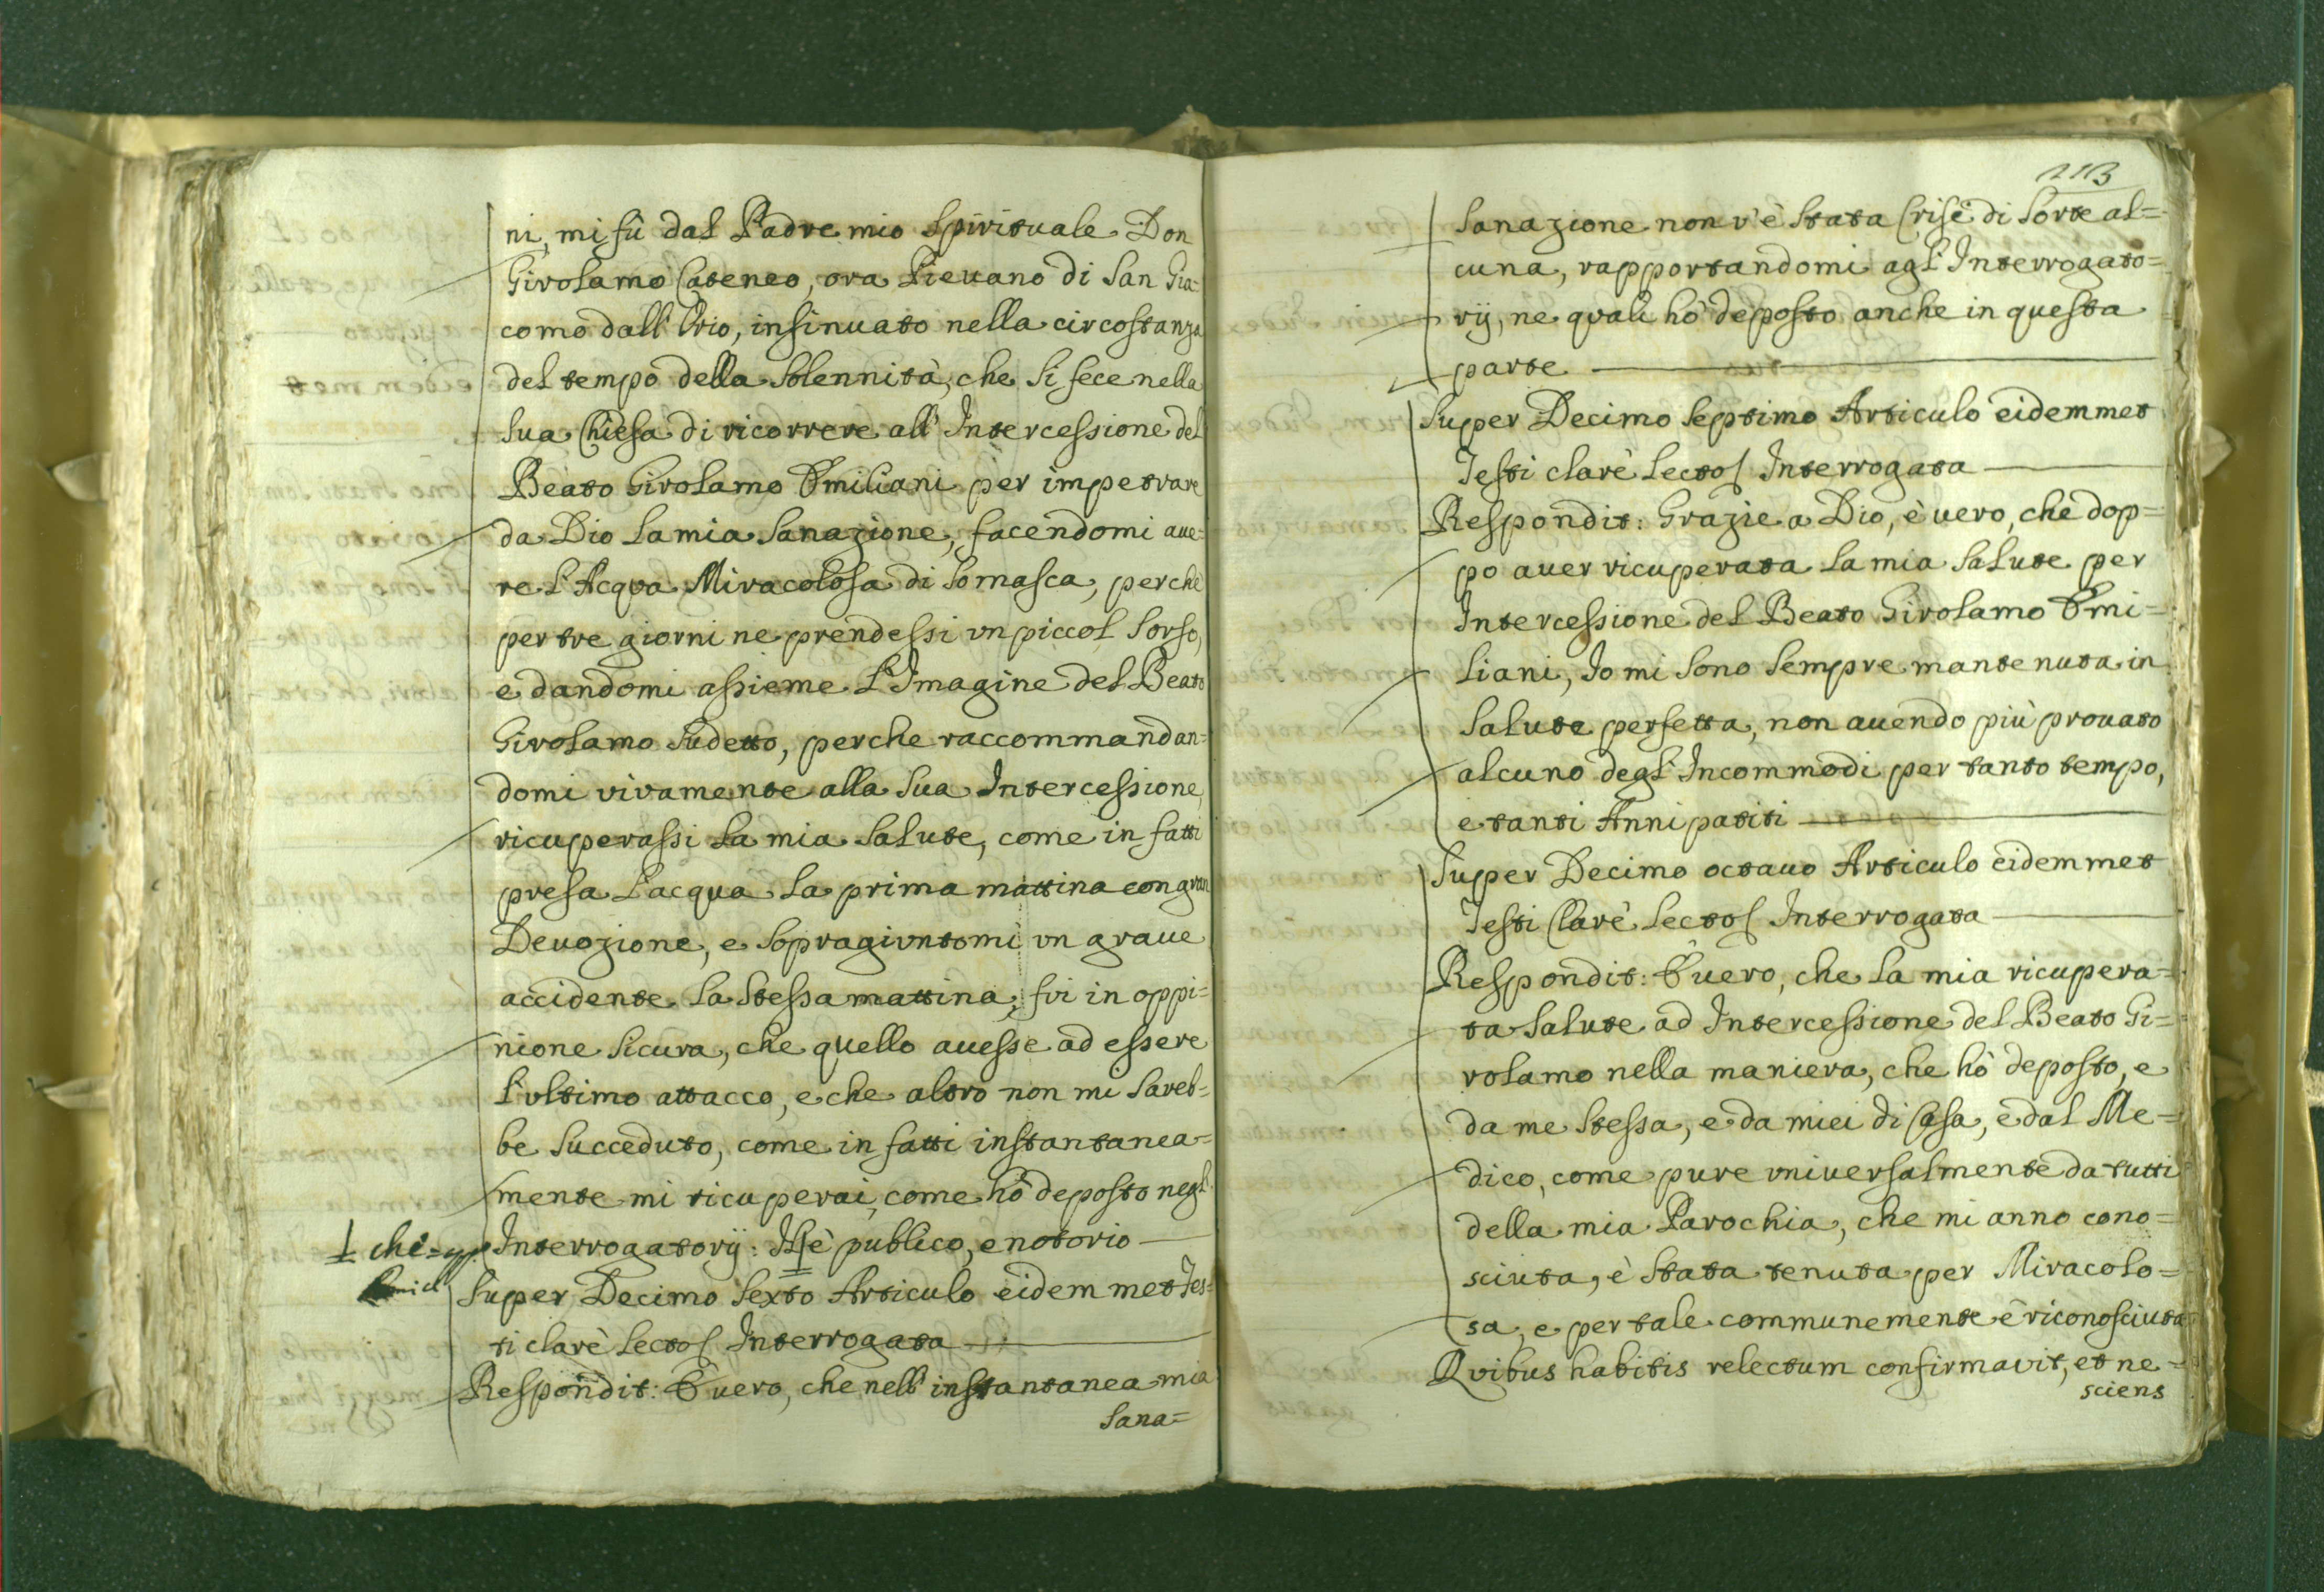 ni, mi fù dal Padre mio Spirituale Don
Girolamo Cateneo, ora Pievano di San Gia=
como dall' Orio, insinuato nella circostanza
del tempo della Solennità, che si fece nella
sua Chiesa di ricorrere all' Intercessione del
Beato Girolamo Emiliani per impetrare
da Dio la mia Sanazione, facendomi aue=
re l'Acqua Miracolosa di Somasca, perche
per tre giorni ne prendessi vn piccol Sorso,
e dandomi assieme l'Imagine del Beato
Girolamo Sudetto, perche raccommandan=
domi vivamente alla Sua Intercessione
ricuperassi la mia Salute, come in fatti
presa l'acqua la prima mattina con gran
Deuozione, e Sopragiuntomi vn graue
accidente la Stessa mattina, fui in oppi=
nione Sicura, che quello auesse ad essere
l'ultimo attacco, e che altro non mi Sareb=
be Succeduto, come in fatti instantanea=
mente mi ricuperai, come hò deposto negl'
che
Interrogatorij: è publico, e notorio
Super Decimo Sexto Articulo eidemmet Tes=
ti clarè lecto Interrogata
Respondit: È uero, che nell' instantanea mia
Sana=
113
Sanazione non v'è Stata Crise di Sorte al=
cuna, rapportandomi agl' Interrogato=
rij, ne quali hò deposto anche in questa
parte
Super Decimo Septimo Articulo eidemmet
Testi clarè lecto Interrogata
Respondit: Grazie a Dio, è uero, che dop=
po auer ricuperata la mia Salute per
Intercessione del Beato Girolamo Emi=
liani, Io mi Sono Sempre mantenuta in
Salute perfetta, non auendo più prouato
alcuno degl' Incommodi per tanto tempo,
e tanti Anni patiti
Super Decimo octauo Articulo eidemmet
Testi Clarè lecto Interrogata
Respondit: È uero, che la mia ricupera=
ta Salute ad Intercessione del Beato Gi=
rolamo nella maniera, che hò deposto, e
da me Stessa, e da miei di Casa, e dal Me=
dico, come pure vniuersalmente da tutti
della mia Parochia, che mi anno cono=
sciuta, è Stata tenuta per Miracolo=
sa, e per tale communemente è riconosciuta
Quibus habitis relectum confirmavit, et ne=
sciens